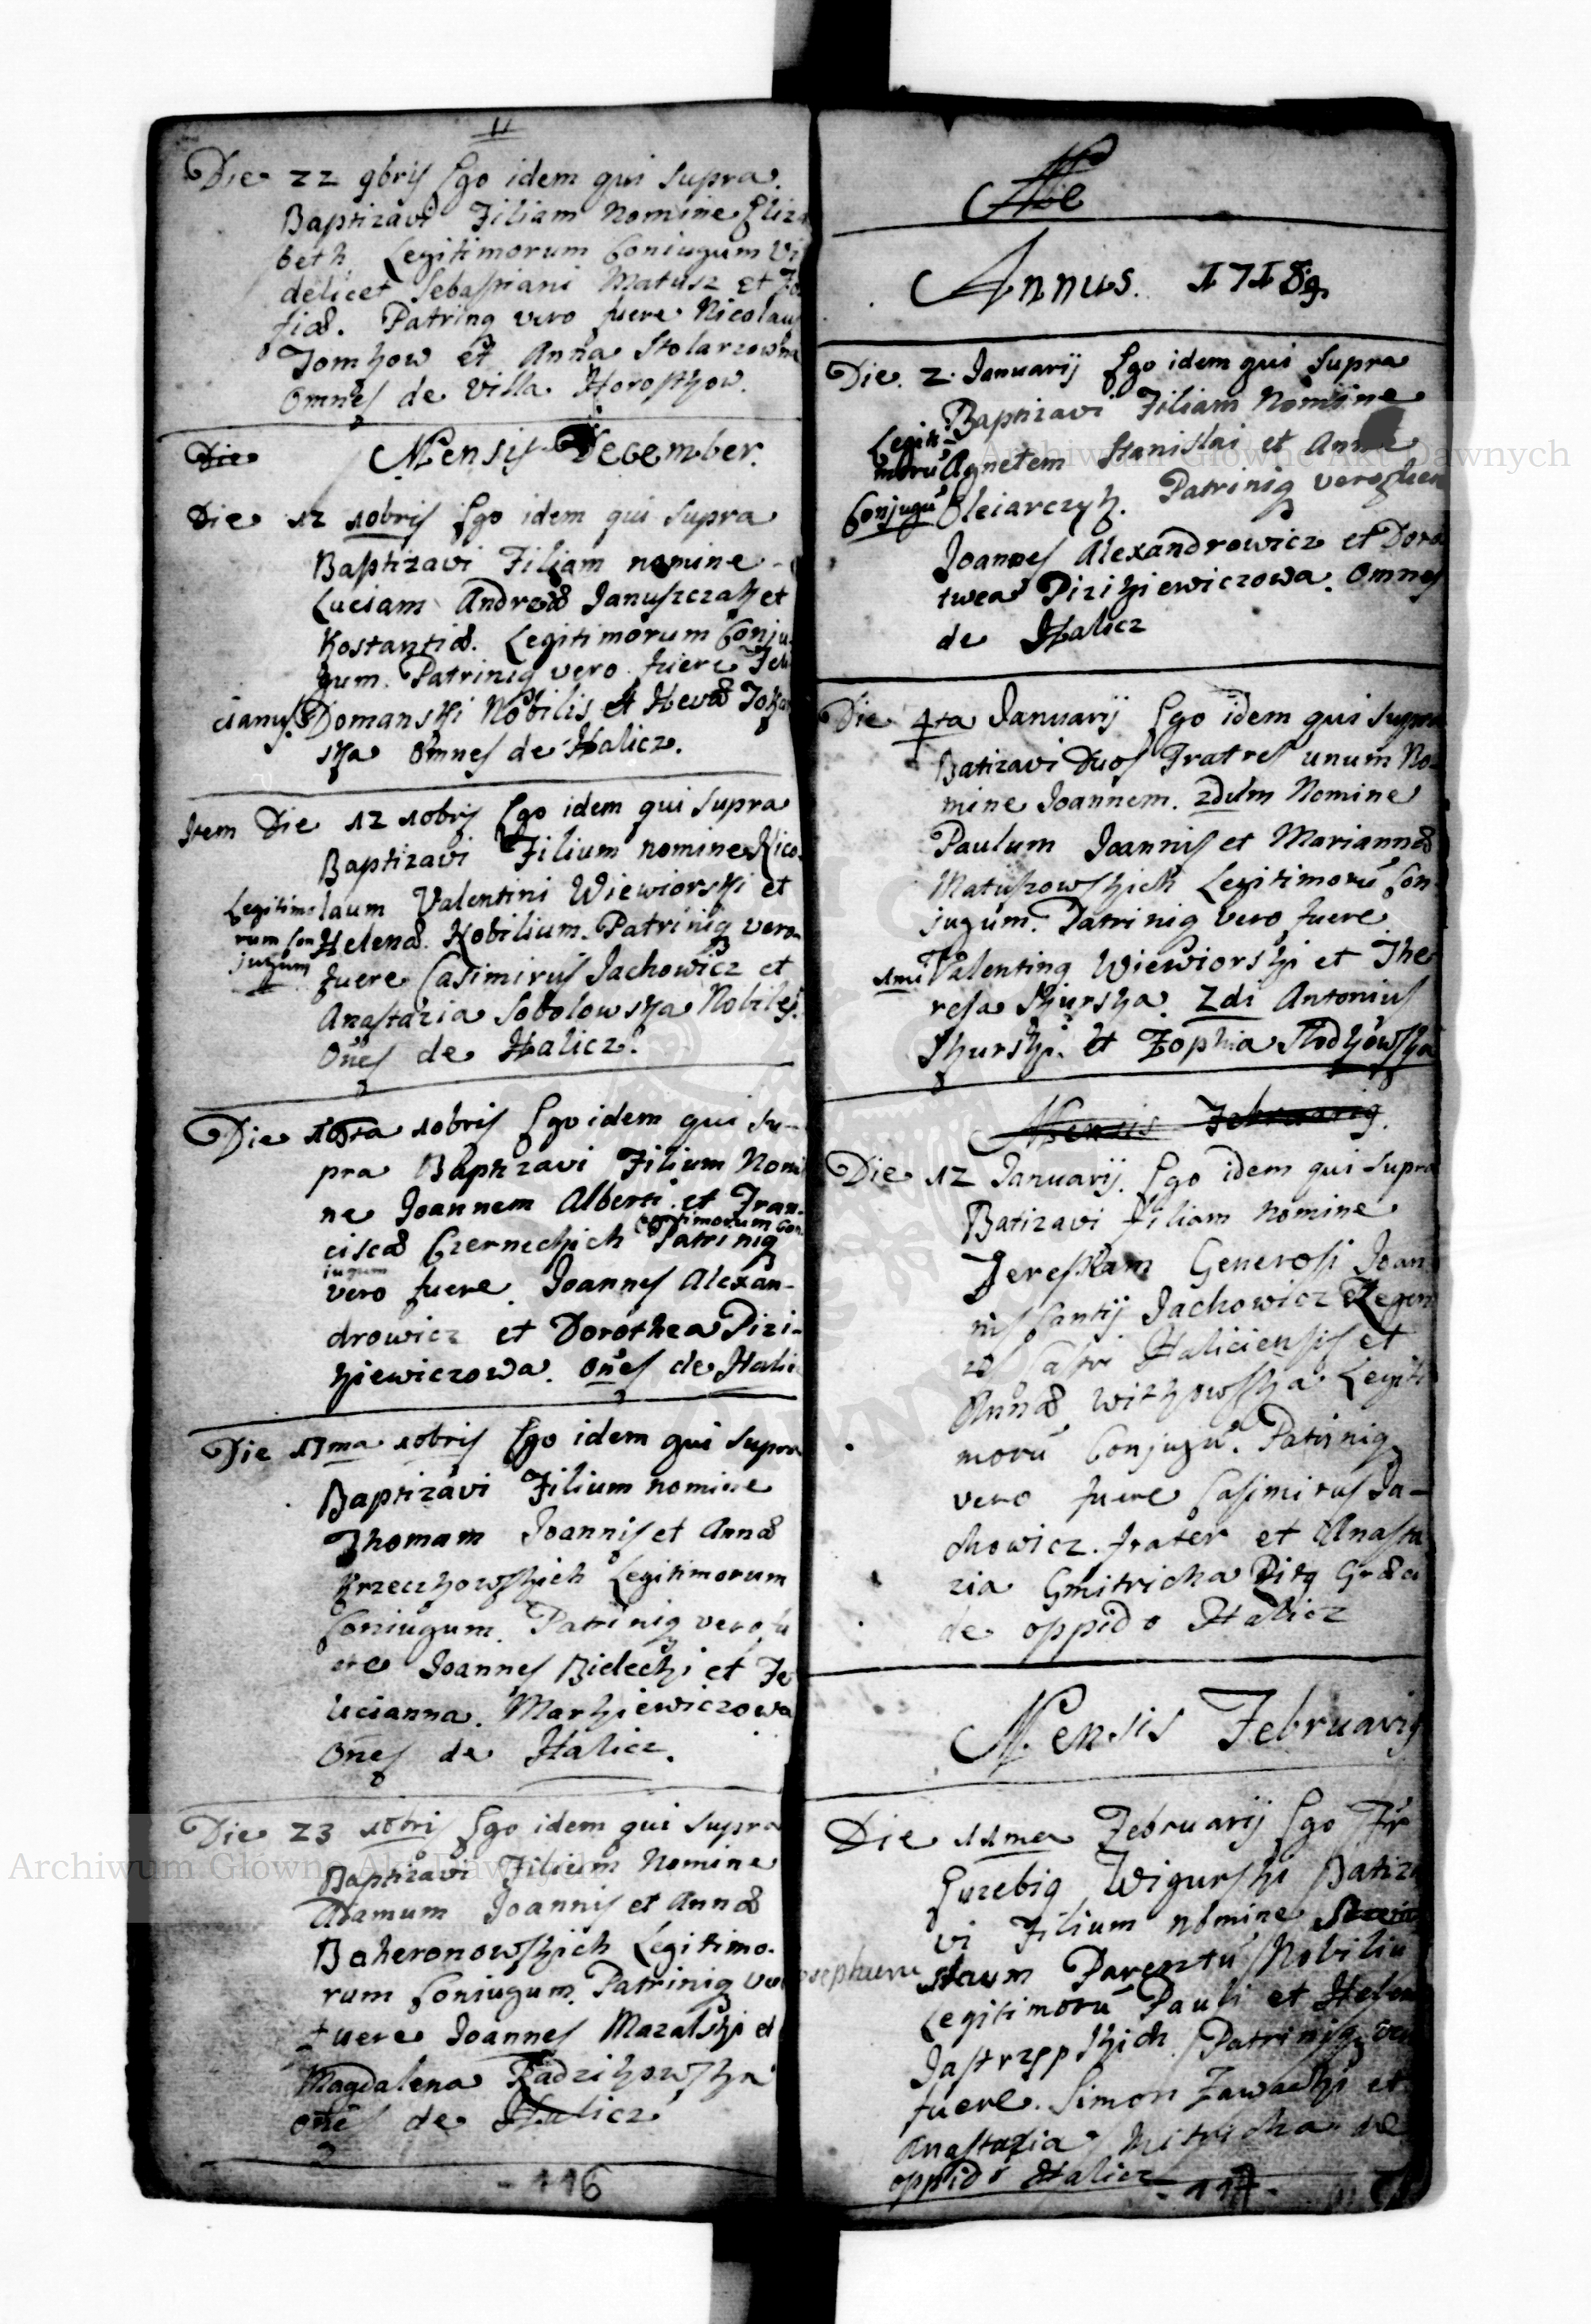 Die 22 9bris Ego idem qui supra
Baptizavi Filiam Nomine Eliza
beth Legitimorum Coniugum Vi
delicet Sebastiani Matusz et Zo
fiæ. Patrinq vero fuere Nicolaus
Tomkow et Anna Stolarzowna
Omnes de Villa Horostkow.
Die Mensis December.
Die 12 10bris Ego idem qui supra
Baptizavi Filiam nomine
Luciam Andreæ Januszczak et
Kostantiæ. Legitimorum Conju
gum. Patriniq vero fuere Feli
cianus Domanski Nobilis et Hevæ Tokar
ska Omnes de Halicz.
Item Die 12 10bris Ego idem qui supra
Baptizavi Filium nomine Nico
laum Valentini Wiewiorski et
Legitimo
rum Con
jugum
Helenæ Nobilium. Patriniq vero
fuere Casimirus Jachowicz et
Anastazia Sobolowska Nobiles.
Oñes de Halicz.
Die 10bris Ego idem qui su-
pra Baptizavi Filium Nomi
ne Joannem Alberti et Fran-
ciscæ Czerneckich Legitimorum Con
jugum Patriniq
vero fuere Joannes Alexan-
drowicz et Dorothea Pizi-
kiewiczowa. Oñes de Halicz
Die 17ma 10bris Ego idem qui supra
Baptizavi Filium nomine
Thomam Joannis et Annæ
Krzeczkowskich Legitimorum
Coniugum. Patriniq vero fu
ere Joannes Bielecki et Fe
licianna Markiewiczowa
Oñes de Halicz.
Die 23 10bris Ego idem qui supra
Baptizavi Filium Nomine
Adamum Joannis et Annæ
Baheronowskich Legitimo-
rum Coniugum. Patriniq vero
fuere Joannes Mazalski et
Magdalena Radzikowska
oñes de Halicz
- 116
Annus. 1718
Die 2 Januarij Ego idem qui supra
Baptizavi Filiam Nomine
Legiti
morũ
Conjugũ
Agnetem Stanislai et Annæ
Oleiarczyk. Patriniq vero fuere
Joannes Alexandrowicz et Doro
twea Pizikiewiczowa. Omnes
de Halicz
Die 4ta Januarij Ego idem qui supra
Batizavi Duos Fratres unum No-
mine Joannem. 2dum Nomine
Paulum Joannis et Mariannæ
Matuszowskich Legitimorũ Con-
jugum. Patriniq vero fuere
1mi Valentinq Wiewiorski et The
resa Skurska. 2di Antonius
Skurski. et Zophia Slodkowska
Mensis Februariq.
Die 12 Januarij. Ego idem qui supra
Batizavi filiam nomine
Teresam Generosi Joan
nis Cantij Jachowicz Regen
tis Castri Haliciensis et
Annæ Witkowska Legiti
morũ Conjugũ. Patriniq
vero fuere Casimirus Ja-
chowicz. frater et Anasta
zia Gmitricha Ritq Græci
de oppido Halicz
Mensis Februariq
Die 11ma Februarij Ego Fr
Euzebiq Wigurski Batiza
vi Filium nomine
osephum Parentũ Nobiliũ
Legitimorũ Pauli et Helenæ
Jastrzępskich. Patriniq vero
fuere. Simon Zawadzki et
Anastazia Mitricha de
oppido Halicz
- 117 -
Archiwum Główne Akt Dawnych
Archiwum Główne Akt Dawnych